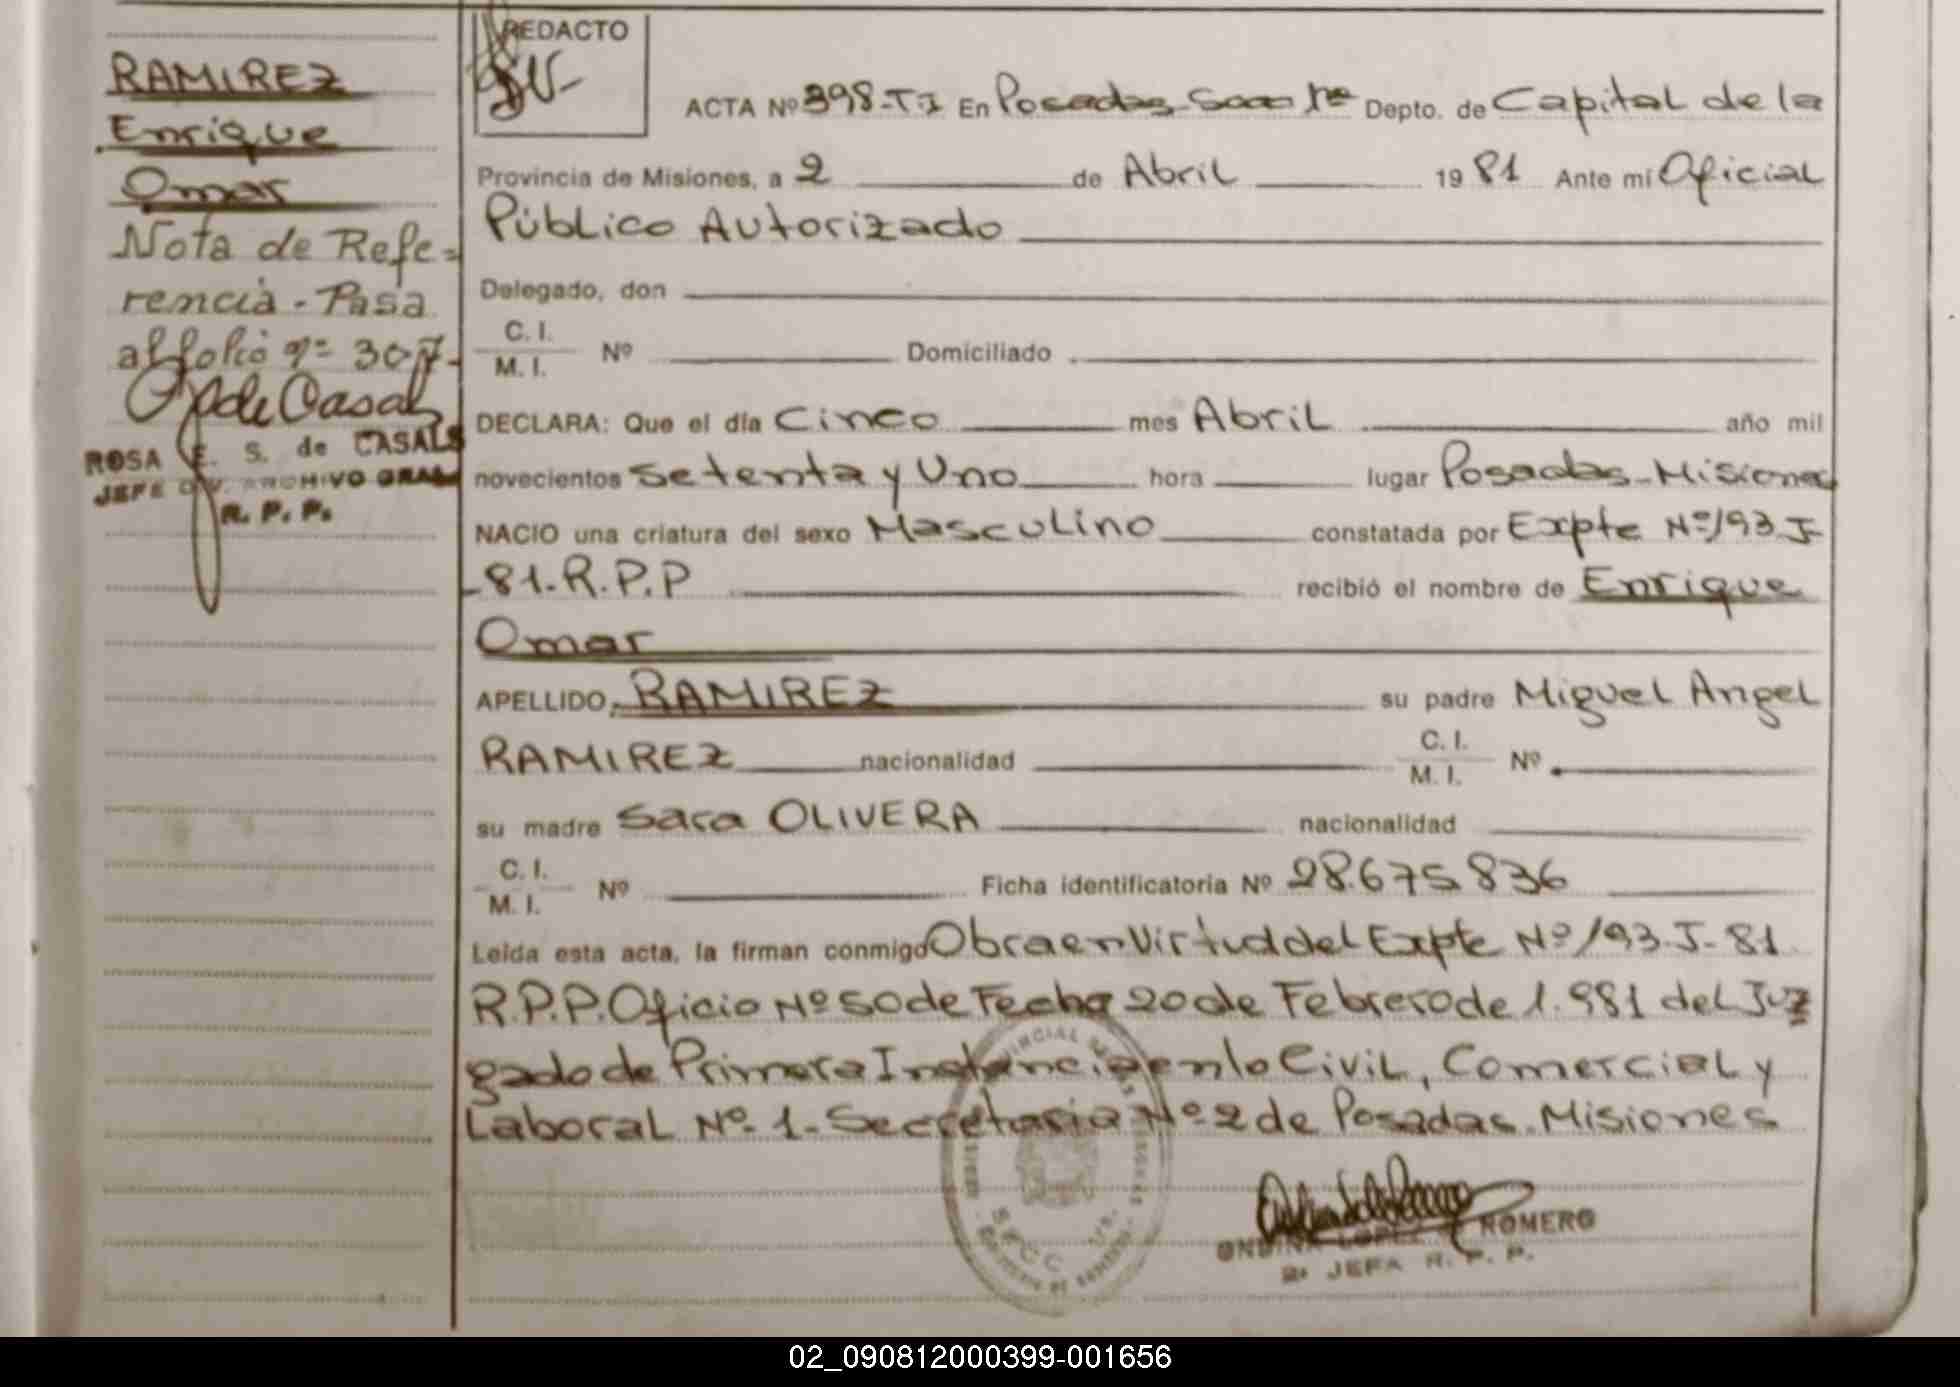 RAMIREZ
Enrique
Omar
Nota de Refe=
rencia - Pasa
al folio nº 307-
ROSA E. S. de CASALS
JEFE DIV. ARCHIVO GRAL
R. P. P.
REDACTO
ACTA Nº 398-T.I En Posadas Secc 1ra Depto. de Capital de la
Provincia de Misiones, a 2 de Abril 1981 Ante mi Oficial
Público Autorizado
Delegado, don
C. I.
M. I. Nº Domiciliado
DECLARA: Que el día Cinco mes Abril año mil
novecientos setenta y Uno hora lugar Posadas-Misiones
NACIO una criatura del sexo Masculino constatada por Expte Nº 193-J-
-81-R.P.P recibió el nombre de Enrique
Omar
APELLIDO: RAMIREZ su padre Miguel Angel
RAMIREZ nacionalidad C. I. M. I. Nº
su madre Sara OLIVERA nacionalidad
C. I.
M. I. Nº Ficha identificatoria Nº 28.675836
Leída esta acta, la firman conmigo Obra en Virtud del Expte Nº 193-J-81
R.P.P. Oficio Nº 50 de Fecha 20 de Febrero de 1.981 del Juz
gado de Primera Instancia en lo Civil, Comercial y
Laboral Nº-1-Secretaria Nº-2 de Posadas-Misiones
ONDINA LOPEZ ROMERO
2a JEFA R. P. P.
02_090812000399-001656